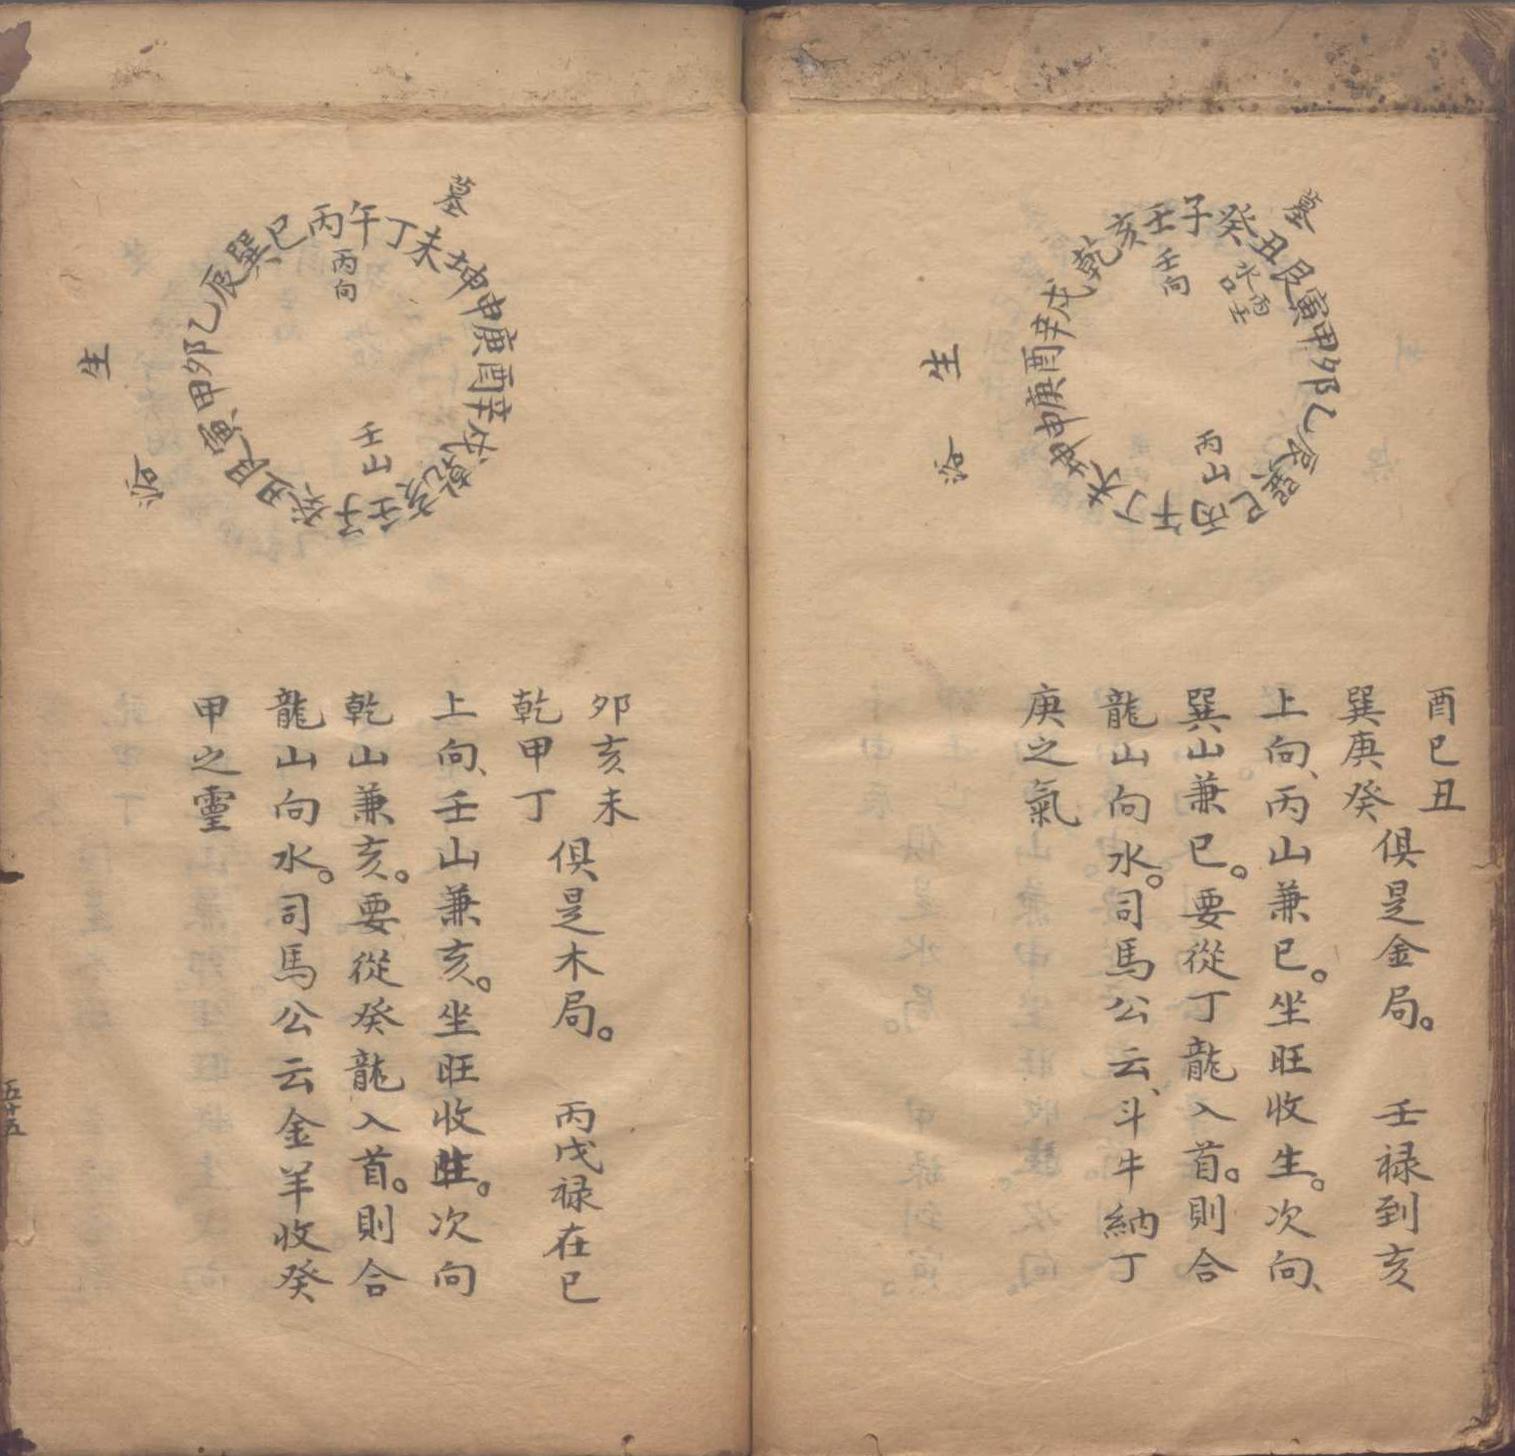 墓
亥壬子癸丑艮寅甲卯乙辰巽巳丙午丁未坤申庚酉辛戌乾
壬向
水
口
丙山
生
浴
酉巳丑
巽庚癸
俱是金局。 壬祿到亥
上向、丙山兼巳。坐旺收生。次向、
巽山兼巳。要從丁龍入首。則合
龍山向水。司馬公云、斗牛納丁
庚之氣
墓
巳丙午丁未坤申庚酉辛戌乾亥壬子癸丑艮寅甲卯乙辰巽
丙向
壬山
生
浴
卯亥未
乾甲丁
俱是木局。 丙戊祿在巳
上向、壬山兼亥。坐旺收。次向
乾山兼亥。要從癸龍入首。則合
龍山向水。司馬公云金羊收癸
甲之靈
五十五